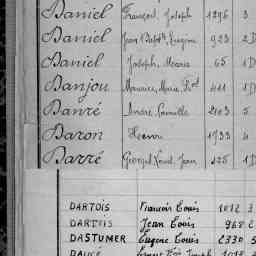 Daniel François, Joseph 1296 3
Daniel Jean Bapt. Eugène 923 2D
Daniel Joseph, Marie 65 1D
Danjou Maurice, Marie 411 1D
Danré André, 2103 5
Daron Henri 1733 4
Darré Georges, Jean 425 1D
DARTOIS François Louis 1012 3
DARTOIS Jean Louis 968 2
DASTUMER Eugène Louis 2330 5
DAUCÉ Ernest Joseph